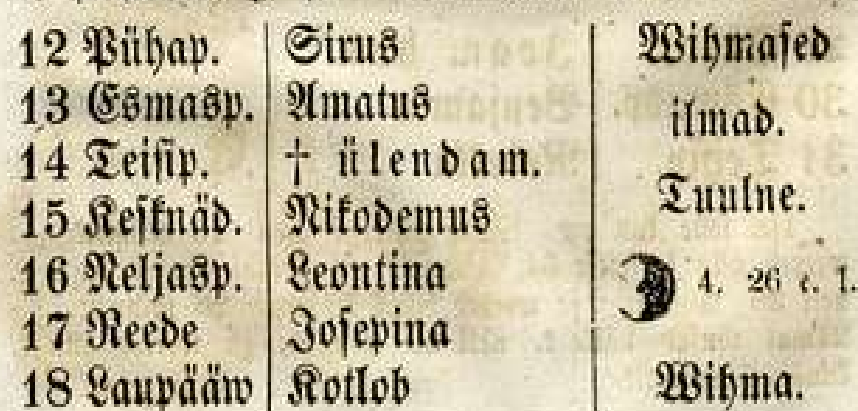 12 Pühap. Sirus Wihmased
13 Esmasp. Amatus ilmad.
14 Teisip. † ülendam.
15 Kesknäd. Nikodemus Tuulne.
16 Neljasp. Leontina 4. 26 e. l.
17 Reede Josepina
18 Laupääw Kotlob Wihma.